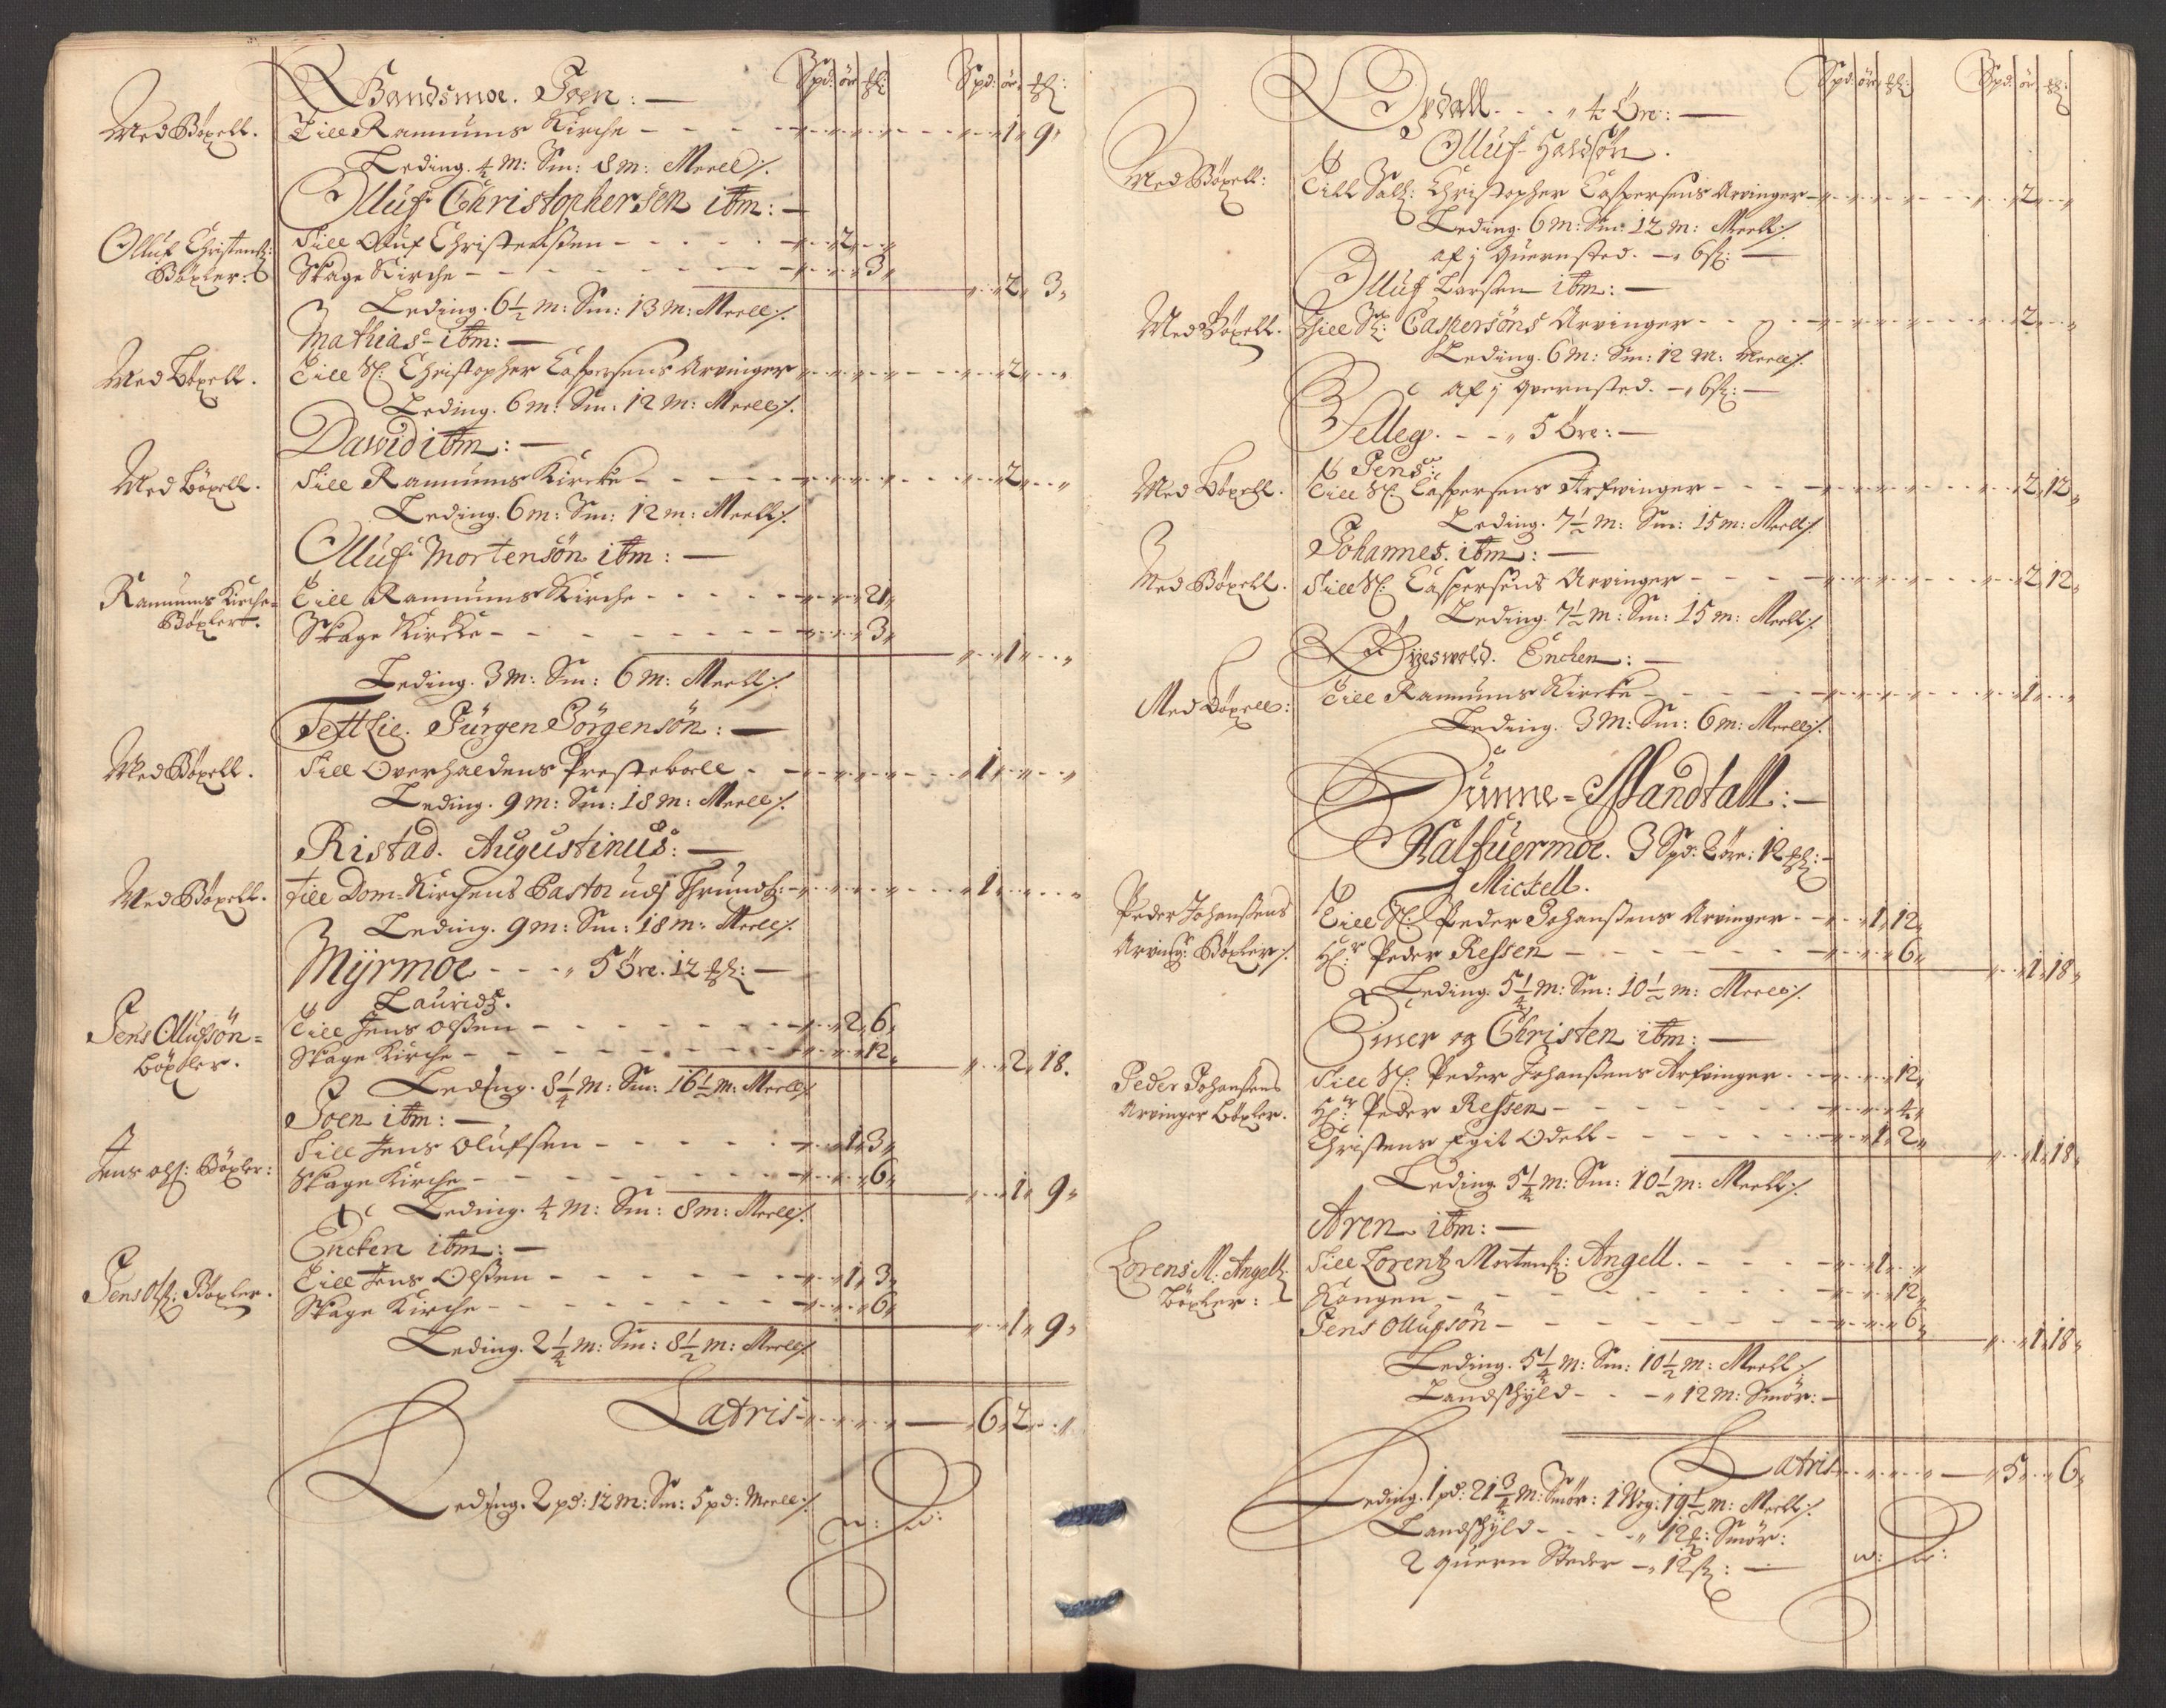 Bandsmoe. Joen: —
Spd: ör: ß:
Spd: ör: ß:
Med Böxell.
Till Rannums Kirche - - - 1 " 9 "
Leding. 4 m: Sm: 8 m: Meell ⁒.
Olluf Christophersen itm: —
Olluf Christens:
Böxler:
Till Oluf Christenßen - - - 2 "
Skage Kirche - - - 3 "
2 " 3 "
Leding. 6½ m: Sm: 13 m: Meell ⁒.
Mathias itm: —
Med Böxell.
Till Sl: Christopher Caspersens Arvinger 2 "
Leding. 6 m: Sm: 12 m: Meell ⁒.
Dawid itm: —
Med Böxell.
Till Rannums Kircke - - - 2 "
Leding. 6 m: Sm: 12 m: Meell ⁒.
Olluf Mortensön itm: —
Rannums Kirche
Böxler.
Till Rannums Kirche - - - 21 "
Skage Kircke - - - 3 "
1 "
Leding. 3 m: Sm: 6 m: Meell ⁒.
Tettlie. Jürgen Jörgensön: —
Med Böxell.
Till Overhaldens Prestebolle - - 1 "
Leding. 9 m: Sm: 18 m: Meell ⁒.
Ristad. Augustinus: —
Med Böxell.
Till Dom-Kirchens Pastor udj Thrundh: - 1 "
Leding. 9 m: Sm: 18 m: Meell ⁒.
Myrmoe - - - " 5 Öre. 12 ß: —
Lauridz.
Jens Ollufsön
Böxler.
Till Jens Olßen - - - 2 " 6 "
Skage Kirche - - - 12 "
2 " 18.
Leding. 8¼ m: Sm: 16½ m: Meell ⁒
Joen itm: —
Jens Olß: Böxler:
Till Jens Olufsen - - - 1 " 3 "
Skage Kirche - - - 6 "
1 " 9 "
Leding. 4 m: Sm: 8 m: Meell ⁒.
Encken itm: —
Jens Olß: Böxler.
Till Jens Olßen - - - 1 " 3 "
Skage Kirche - - - 6 "
1 " 9 "
Leding. 2¼ m: Sm: 8½ m: Meell ⁒
Latris - - - 6 " 2 "
Leding. 2 pd: 12 m: Sm: 5 pd: Meell ⁒
Opdall - - - " 4 Öre: —
Spd: ör: ß:
Spd: ör: ß:
Olluf Haldsön.
Med Böxell:
Till Salh: Christopher Caspersens Arvinger - 2 "
Leding. 6 m: Sm: 12 m: Meell ⁒.
af j Quernsted. — " 6 ß: —
Olluf Larsen itm: —
Med Böxell.
Till Sl: Caspersöns Arvinger - - - 2 "
Leding. 6 m: Sm: 12 m: Meell ⁒.
af j Qvernsted. — " 6 ß: —
Selleg. - - " 5 Öre: —
Jens:
Med Böxell.
Till Sl: Caspersens Arfvinger - - - 2 " 12 "
Leding. 7½ m: Sm: 15 m: Meell ⁒.
Johannes. itm: —
Med Böxell.
Till Sl: Caspersens Arvinger - - - 2 " 12 "
Leding. 7½ m: Sm: 15 m: Meell ⁒.
Öyeswold. Enchen: —
Med Böxell:
Till Rannums Kircke - - - 1 "
Leding. 3 m: Sm: 6 m: Meell ⁒.
Dunne-Mandtall: —
Kalfuermoe. 3 Spd: 2 öre: 12 ß: -
Mickell.
Peder Johanßens
Arving: Böxler ⁒.
Till Sl: Peder Johanßens Arvinger - - 1 " 12 "
Hr: Peder Ressen - - - 6 "
1 " 18 "
Leding. 5¼ m: Sm: 10½ m: Meell ⁒.
Einer og Christen itm: —
Peder Johanßens
Arvinger Böxler.
Till Sl: Peder Johanßens Arfvinger - - 12 "
Hr: Peder Ressen - - - 4 "
Christens Egit Odell - - - 1 " 2 "
1 " 18 "
Leding. 5¼ m: Sm: 10½ m: Meell ⁒.
Aren itm: —
Lorens M: Angell
Böxler:
Till Lorentz Mortens: Angell. - - - 1 "
Kongen - - - 12 "
Jens Ollufsön - - - 6 "
1 " 18 "
Leding. 5¼ m: Sm: 10½ m: Meell ⁒
Landskyld - - - " 12 m: Smör: -
Latris - - - 5 " 6 "
Leding. 1 pd: 21¾ m: Smör: 1 Wog: 19½ m: Meell ⁒.
Landskyld - - - " 12 m: Smör:
2 Quern Steder — " 12 ß: —